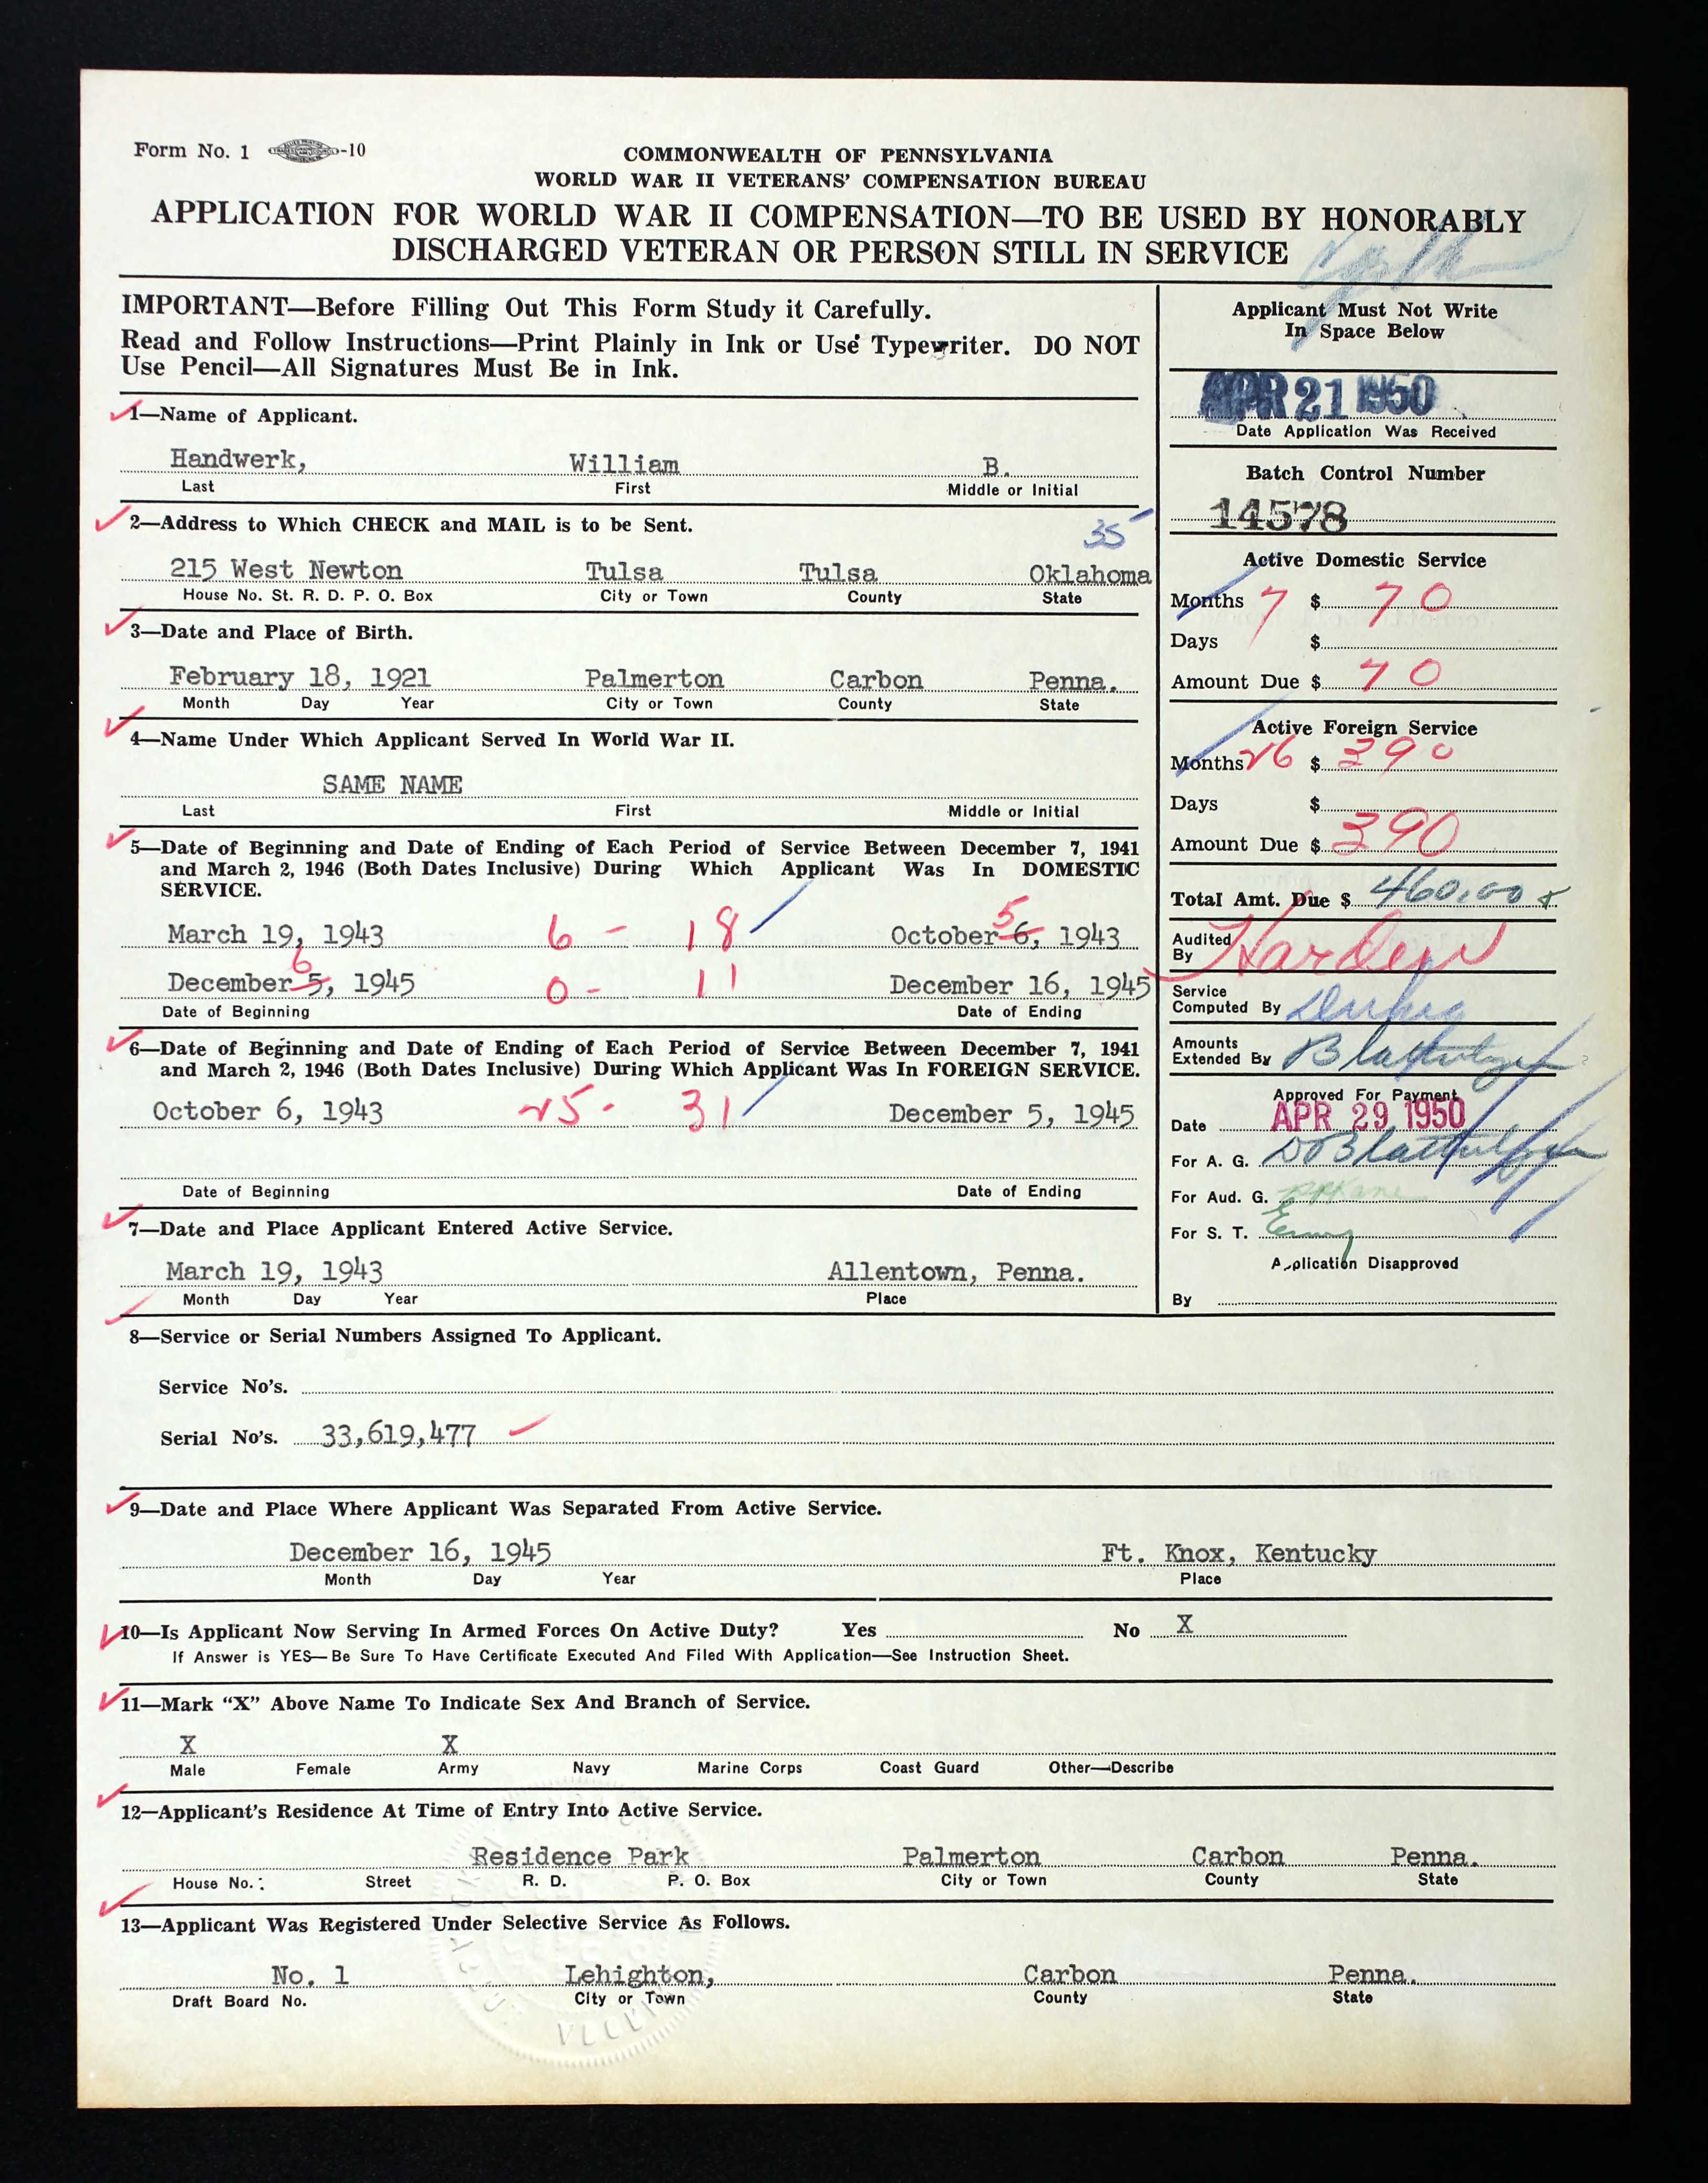 Form No. 1 -10
COMMONWEALTH OF PENNSYLVANIA
WORLD WAR II VETERANS' COMPENSATION BUREAU
APPLICATION FOR WORLD WAR II COMPENSATION—TO BE USED BY HONORABLY
DISCHARGED VETERAN OR PERSON STILL IN SERVICE
IMPORTANT—Before Filling Out This Form Study it Carefully.
Read and Follow Instructions—Print Plainly in Ink or Use Typewriter. DO NOT
Use Pencil—All Signatures Must Be in Ink.
1—Name of Applicant.
Handwerk, William B.
Last First Middle or Initial
2—Address to Which CHECK and MAIL is to be Sent.
35
215 West Newton Tulsa Tulsa Oklahoma
House No. St. R. D. P. O. Box City or Town County State
3—Date and Place of Birth.
February 18, 1921 Palmerton Carbon Penna.
Month Day Year City or Town County State
4—Name Under Which Applicant Served In World War II.
SAME NAME
Last First Middle or Initial
5—Date of Beginning and Date of Ending of Each Period of Service Between December 7, 1941
and March 2, 1946 (Both Dates Inclusive) During Which Applicant Was In DOMESTIC
SERVICE.
5
March 19, 1943 6 - 18 October 6, 1943
6
December 5, 1945 0 - 11 December 16, 1945
Date of Beginning Date of Ending
6—Date of Beginning and Date of Ending of Each Period of Service Between December 7, 1941
and March 2, 1946 (Both Dates Inclusive) During Which Applicant Was In FOREIGN SERVICE.
October 6, 1943 25 - 31 December 5, 1945
Date of Beginning Date of Ending
7—Date and Place Applicant Entered Active Service.
March 19, 1943 Allentown, Penna.
Month Day Year Place
Applicant Must Not Write
In Space Below
APR 21 1950
Date Application Was Received
Batch Control Number
14578
Active Domestic Service
Months 7 $ 70
Days $
Amount Due $ 70
Active Foreign Service
Months 26 $ 390
Days $
Amount Due $ 390
Total Amt. Due $ 460.00
Audited
By Harden
Service
Computed By
Amounts
Extended By
Approved For Payment
Date APR 29 1950
For A. G.
For Aud. G.
For S. T.
Application Disapproved
By
8—Service or Serial Numbers Assigned To Applicant.
Service No's.
Serial No's. 33,619,477
9—Date and Place Where Applicant Was Separated From Active Service.
December 16, 1945 Ft. Knox, Kentucky
Month Day Year Place
10—Is Applicant Now Serving In Armed Forces On Active Duty? Yes No X
If Answer is YES—Be Sure To Have Certificate Executed And Filed With Application—See Instruction Sheet.
11—Mark "X" Above Name To Indicate Sex And Branch of Service.
X X
Male Female Army Navy Marine Corps Coast Guard Other—Describe
12—Applicant's Residence At Time of Entry Into Active Service.
Residence Park Palmerton Carbon Penna.
House No. Street R. D. P. O. Box City or Town County State
13—Applicant Was Registered Under Selective Service As Follows.
No. 1 Lehighton, Carbon Penna.
Draft Board No. City or Town County State